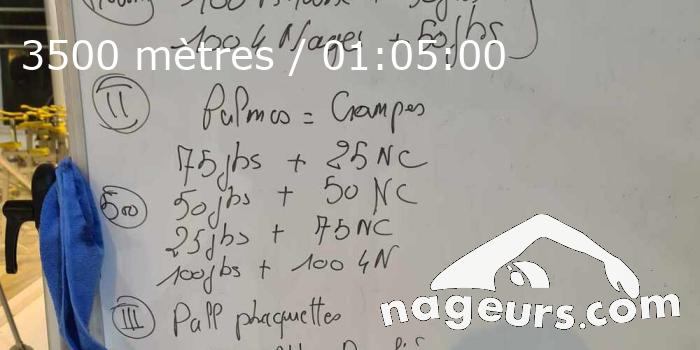 100 4 Nages + 50 jbs
3500 mètres / 01:05:00
II Palmes = Crampes
75 jbs + 25 NC
500 50 jbs + 50 NC
25 jbs + 75 NC
100 jbs + 100 4N
III Pall plaquettes
nageurs.com